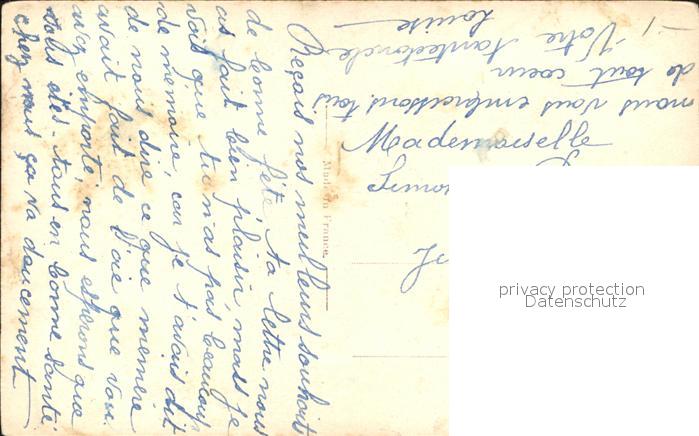 Reçois nos meilleurs souhait
de bonne fête ta lettre nous
as fait bien plaisir, mais je
vois que tu n'as pas beaucoup
de mémoire, car je t'avais dit
de nous dire ce que memère
avait fait de l'oie que vous
avez emporté, nous esperons que
vous êtes tous en bonne santé
chez nous ça va doucement
nous vous embrassons tous
de tout coeur
Votre
Louise
Mademoiselle
Made in France.
privacy protection
Datenschutz